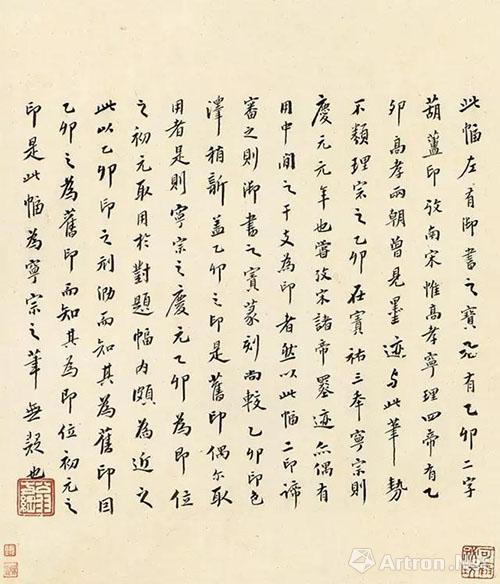 此幅左有御書之寳有乙卯二字
葫蘆印攷南宋惟高孝寧理四帝有乙
卯高孝兩朝曾見墨迹与此筆勢
不類理宗之乙卯在寳祐三年寧宗則
慶元元年也嘗攷宋諸帝墨迹亦偶有
用中間之干支為印者然以此幅二印諦
審之則御書之寳篆刻尚較乙卯印色
澤稍新蓋乙卯之印是舊印偶尔取
用者是則寧宗之慶元乙卯為即位
之初元取用於對題幅内頗為近之
此以乙卯印之刓泐而知其為舊印因
乙卯之為舊印而知其為即位初元之
印是此幅為寧宗之筆無疑也
Artron.Net